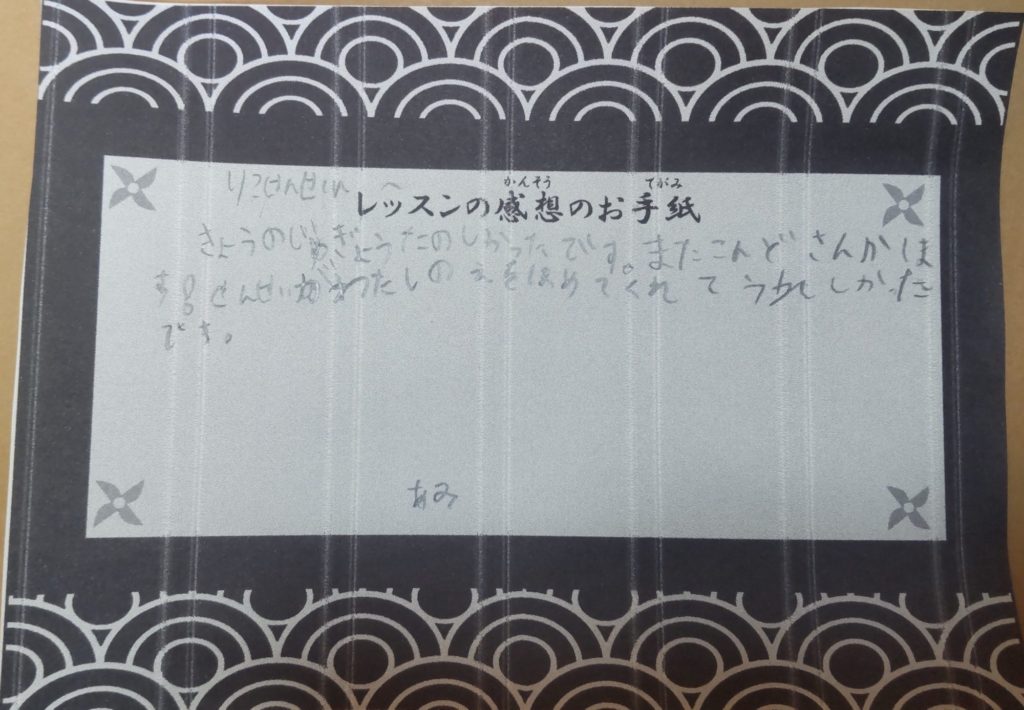 りこせんせい へ
かんそう てがみ
レッスンの感想のお手紙
きょうのじゅぎょうたのしかったです。またこんど さんかは
する せんせいがわたしのえをほめてくれて うれしかった
です。
あみ